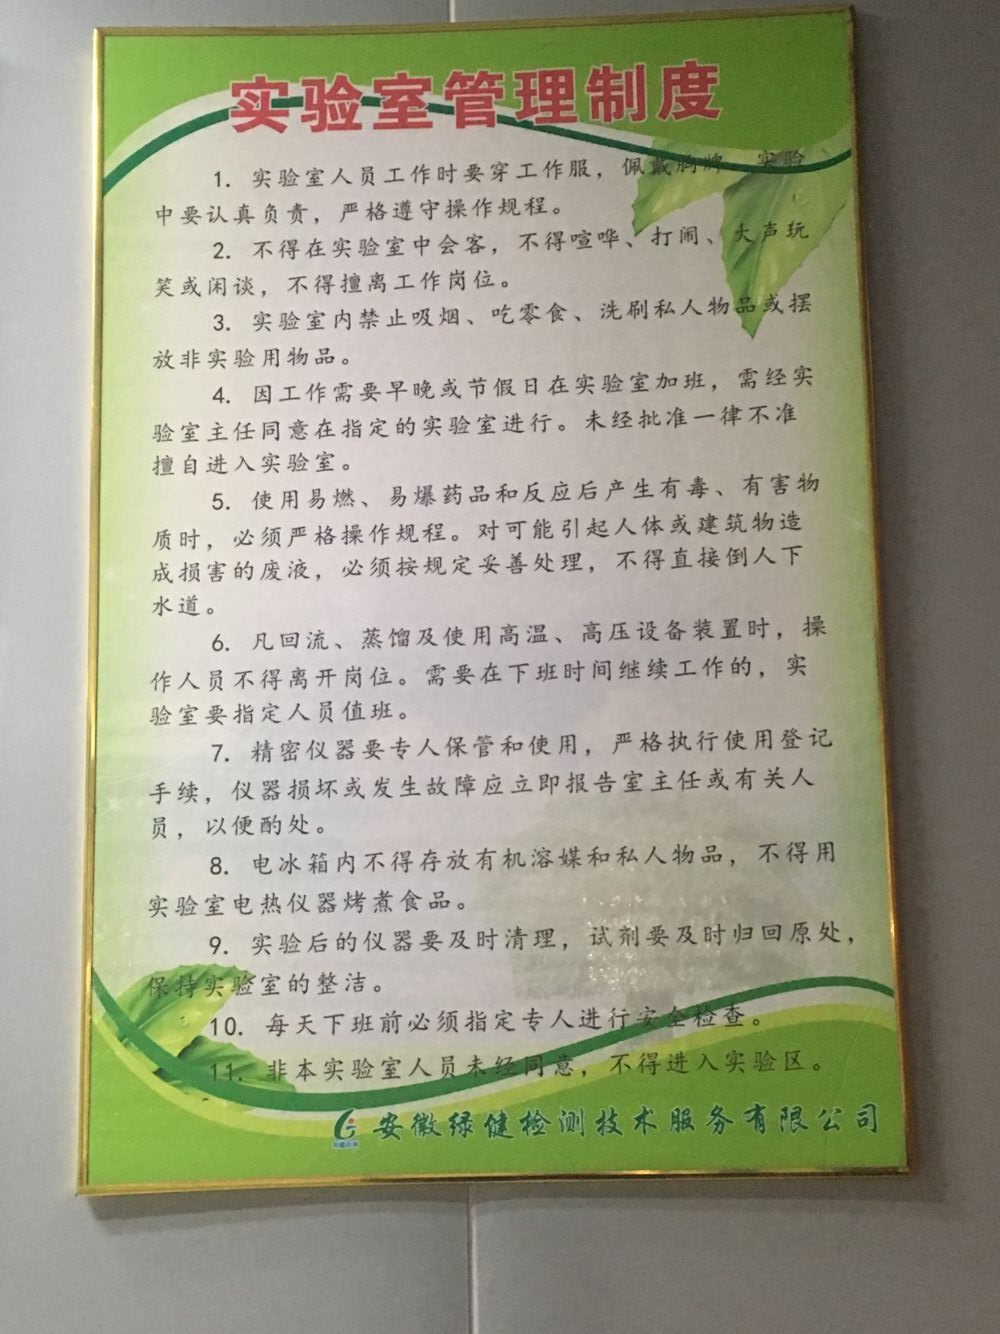 实验室管理制度
1. 实验室人员工作时要穿工作服，佩戴胸牌，实验
中要认真负责，严格遵守操作规程。
2. 不得在实验室中会客，不得喧哗、打闹、大声玩
笑或闲谈，不得擅离工作岗位。
3. 实验室内禁止吸烟、吃零食、洗刷私人物品或摆
放非实验用物品。
4. 因工作需要早晚或节假日在实验室加班，需经实
验室主任同意在指定的实验室进行。未经批准一律不准
擅自进入实验室。
5. 使用易燃、易爆药品和反应后产生有毒、有害物
质时，必须严格操作规程。对可能引起人体或建筑物造
成损害的废液，必须按规定妥善处理，不得直接倒人下
水道。
6. 凡回流、蒸馏及使用高温、高压设备装置时，操
作人员不得离开岗位。需要在下班时间继续工作的，实
验室要指定人员值班。
7. 精密仪器要专人保管和使用，严格执行使用登记
手续，仪器损坏或发生故障应立即报告室主任或有关人
员，以便酌处。
8. 电冰箱内不得存放有机溶媒和私人物品，不得用
实验室电热仪器烤煮食品。
9. 实验后的仪器要及时清理，试剂要及时归回原处，
保持实验室的整洁。
10. 每天下班前必须指定专人进行安全检查。
11. 非本实验室人员未经同意，不得进入实验区。
安徽绿健检测技术服务有限公司